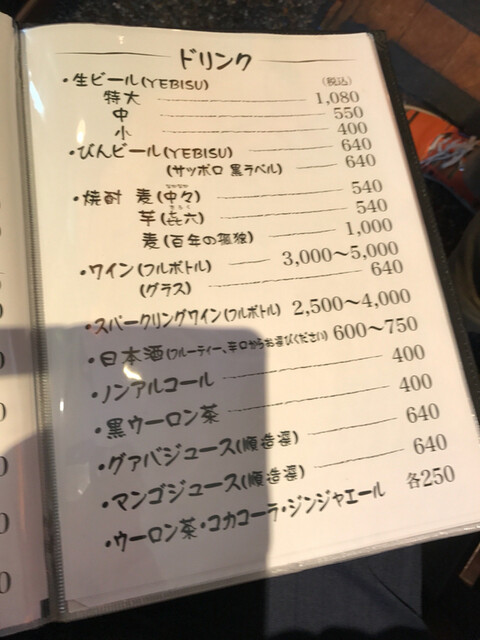 ドリンク
(税込)
・生ビール(YEBISU)
特大 1,080
中 550
小 400
・びんビール(YEBISU) 640
(サッポロ 黒ラベル) 640
・焼酎 麦(中々) 540
なかなか
芋(㐂六) 540
きろく
麦(百年の孤独) 1,000
・ワイン(フルボトル) 3,000〜5,000
(グラス) 640
・スパークリングワイン(フルボトル) 2,500〜4,000
・日本酒(フルーティー、辛口からお選びください) 600〜750
・ノンアルコール 400
・黒ウーロン茶 400
・グァバジュース(順造選) 640
・マンゴジュース(順造選) 640
・ウーロン茶・コカコーラ・ジンジャエール 各250